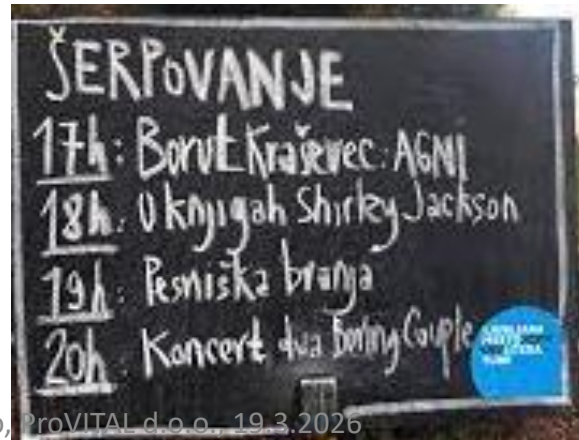 ŠERPOVANJE
17h: Borut Kraševec: AGNI
18h: O knjigah Shirley Jackson
19h: Pesniška branja
20h: Koncert dua Boring Couple
LJUBLJANA
ProVITAL d.o.o., 19.3.2026